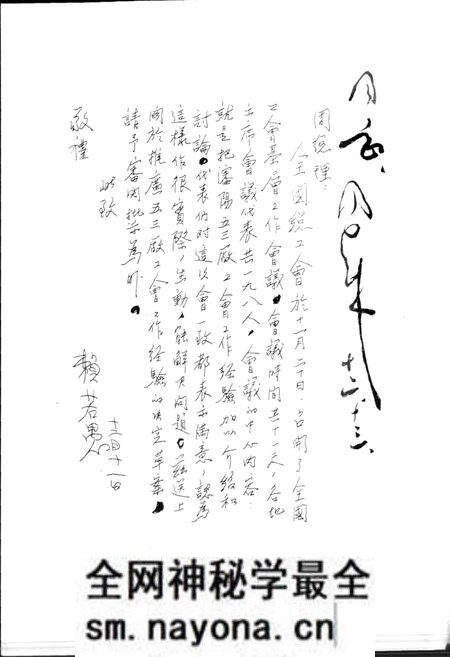 同意。周恩来
十二、十三、
周總理:
全國總工會於十一月二十日,召開了全國
工會基層工作會議。會議時間共十一天,各地
出席會議代表共一九八人,會議的中心內容:
就是把瀋陽五三廠工會工作經驗加以介紹和
討論。代表們對這次會一致都表示滿意,認為
這樣估很實際,生動,能解決問題。茲送上
關於推廣五三廠工會工作經驗的決定草案,
請予審閱批示為盼。
此致
敬禮
賴若愚
十二月十一日
全网神秘学最全
sm.nayona.cn